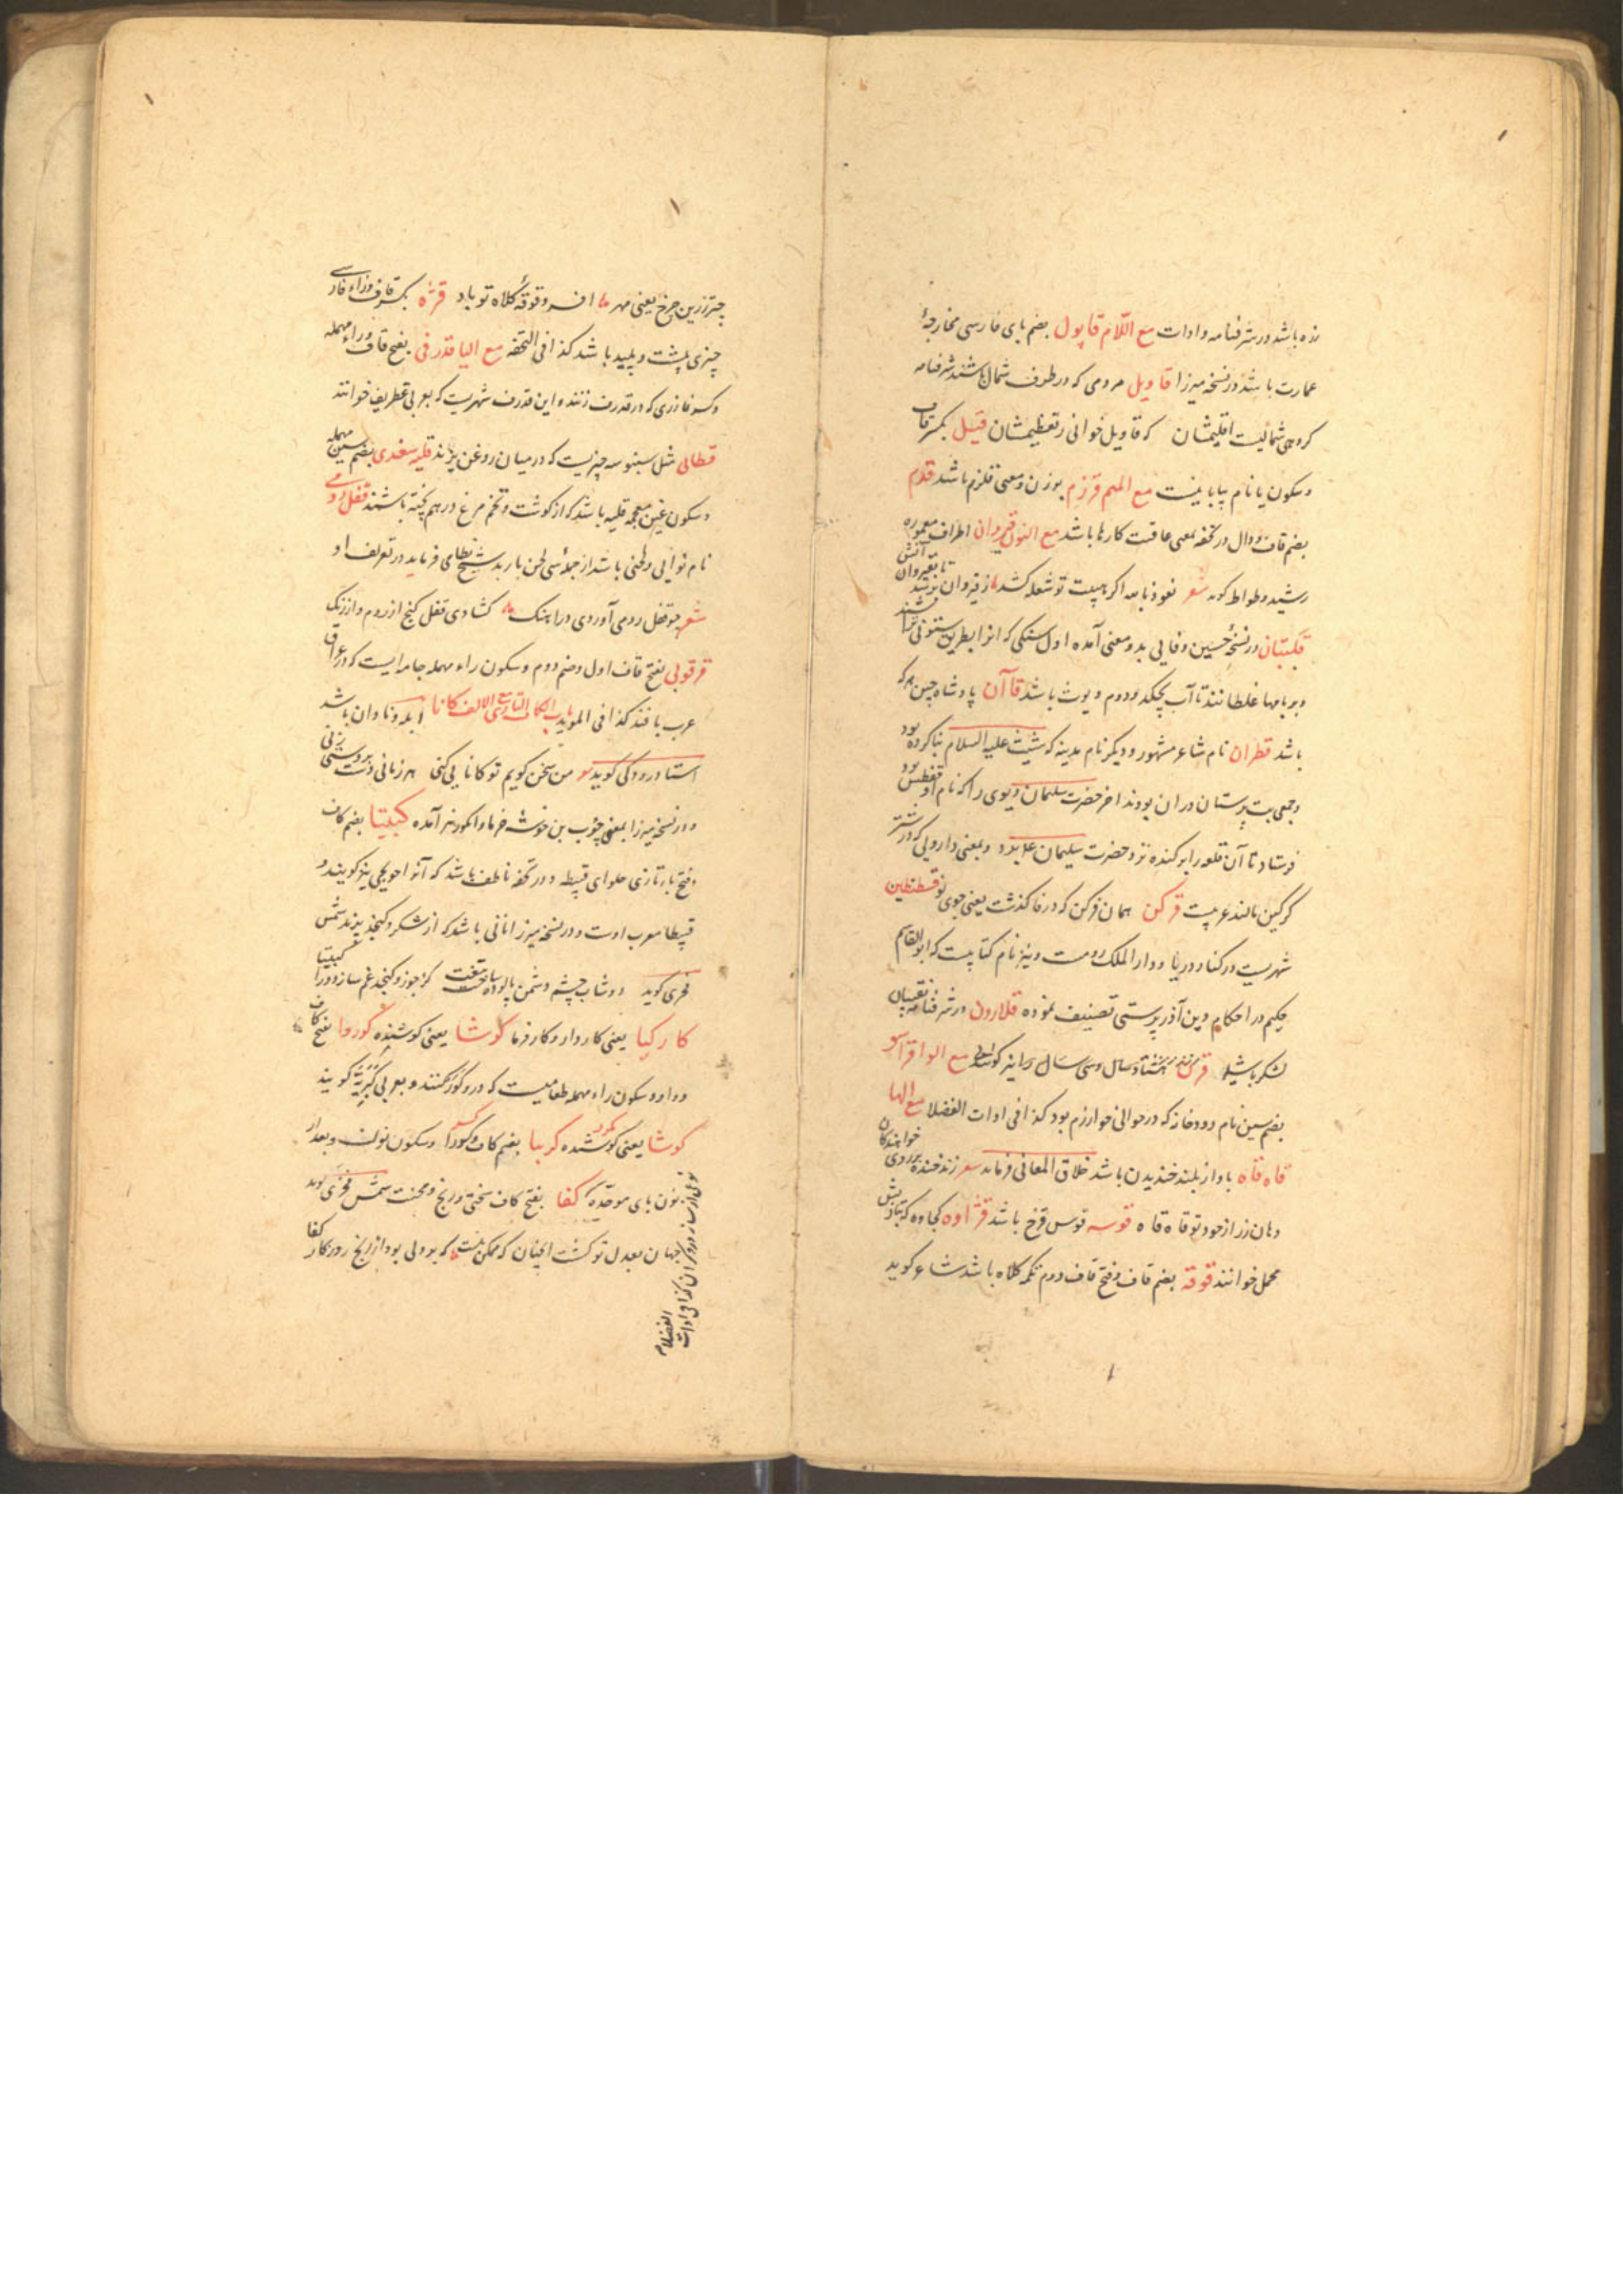 زه باشد در شرفنامه و ادات مع اللام قاپول بضم بای فارسی مخارجهٔ
عمارت باشد در نسخه میرزا قاویل مردمی که در طرف شمال باشند شرفنامه
کروهی شمالیست اقلیمشان که قاویل خوانی ز تعظیمشان قتیل بکسر قاف
و سکون یا نام بیابانیست مع المیم قرزم بوزن و معنی قلزم باشد قدم
بضم قاف و دال در تحفه بمعنی عاقبت کارها باشد مع النون قیروان اطراف معموره
رشید وطواط کوید شعر نعوذ بالله اکر هیبت تو شعله کشد از قیروان برسد آتش تا بقیروان
قلتبان در نسخهٔ حسین وفایی بدو معنی آمده اول سنکی که انرا بطریق ستونی تراشند
و بر بامها غلطانند تا آب نچکد و دوم دیوث باشد قاآن پادشاه چین هر که
باشد قطران نام شاعر مشهور و دیکر نام مدینه که شیث علیه السلام بنا کرده بود
و جمعی بت پرستان دران بودند اخر حضرت سلیمان دیوی را که نام او قفطس بود
فرستاد تا آن قلعه را بر کنده نزد حضرت سلیمان علا برد و بمعنی دارویی که در شتر
کرکین مالند عربیست قرکن همان فرکن که در فا کذشت یعنی جوی نو قسطنطین
شهریست در کنار دریا و دار الملک رومست و نیز نام کتابیست که ابو القاسم
حکیم در احکام دین آذر پرستی تصنیف نموده قلارون در شرفنامه نقیبان
لشکر باشد قرن هشتاد سال و سی سال را نیز کویند مع الواو قراسو
بضم سین نام رودخانه که در حوالی خوارزم بود کذا فی ادات الفضلا مع الها
قاه قاه باواز بلند خندیدن باشد خلاق المعانی فرماید شعر زند خنده بر روی خواهندکان
دهان زر از جود تو قاه قاه قوسه قوس قزح باشد قژاوه کجاوه که بتازیش
محمل خوانند قوقه بضم قاف و فتح قاف دوم تکمه کلاه باشد شاعر کوید
چتر زرین چرخ یعنی مهر افسر و قوقهٔ کلاه تو باد قژه بکسر قاف و زاء فارسی
چیزی پلشت و پلید باشد کذا فی التحفه مع الیا قدرفی بفتح قاف و راء مهمله
و کسر فا زری که در قدرف زنند و این قدرف شهریست که بعربی غطریف خوانند
قطابی مثل سنبوسه چیزیست که در میان روغن پزند قلیه سغدی بضم سین مهمله
و سکون غین معجمه قلیه باشد که از کوشت و تخم مرغ درهم پخته باشند قفل رومی
نام نوایی و لحنی باشد از جملهٔ سی لحن باربد شیخ نظامی فرماید در تعریف او
شعر چو قفل رومی آوردی در اهنک کشادی قفل کنج از روم و از زنک
قرقوبی بفتح قاف اول و ضم دوم و سکون راء مهمله جامه ایست که در عراق
عرب بافند کذا فی الموید باب الکاف التازی مع الالف کانا ابله و نادان باشد
استاد رودکی کوید من سخن کویم تو کانایی کنی هر زمانی دست بر دستی زنی
و در نسخه میرزا بمعنی چوب بن خوشه خرما و انکور نیز آمده کبیتا بضم کاف
و فتح باء تازی حلوای قبیطه و در تحفه ناطف باشد که آنرا حویجی نیز کویند و
قبیطا معرب اوست و در نسخه میرزا نانی باشد که از شکر و کنجد پزند شمس
فخری کوید دوشاب چشم دشمن پالوده ساخت کز جوز و کنجد غم سازد ورا کبیتا
کارکیا یعنی کاردار و کارفرما کوشا یعنی کوشنده کوروا بفتح کاف
و واو و سکون راء مهمله طعامیست که درو کوز کنند و بعربی کبریه کویند
کوشا یعنی کوشنده کربیا بضم کاف و سکون نون و بعد از
نون بای موحده کفا بفتح کاف سختی و رنج و محنت شمس فخری کوید
جهان بعدل تو کشت انچنان که ممکن نیست که بر دلی بود از رنج روزکار کفا
نوعی از ساز درودکران کذا فی ادات
الفضلا م